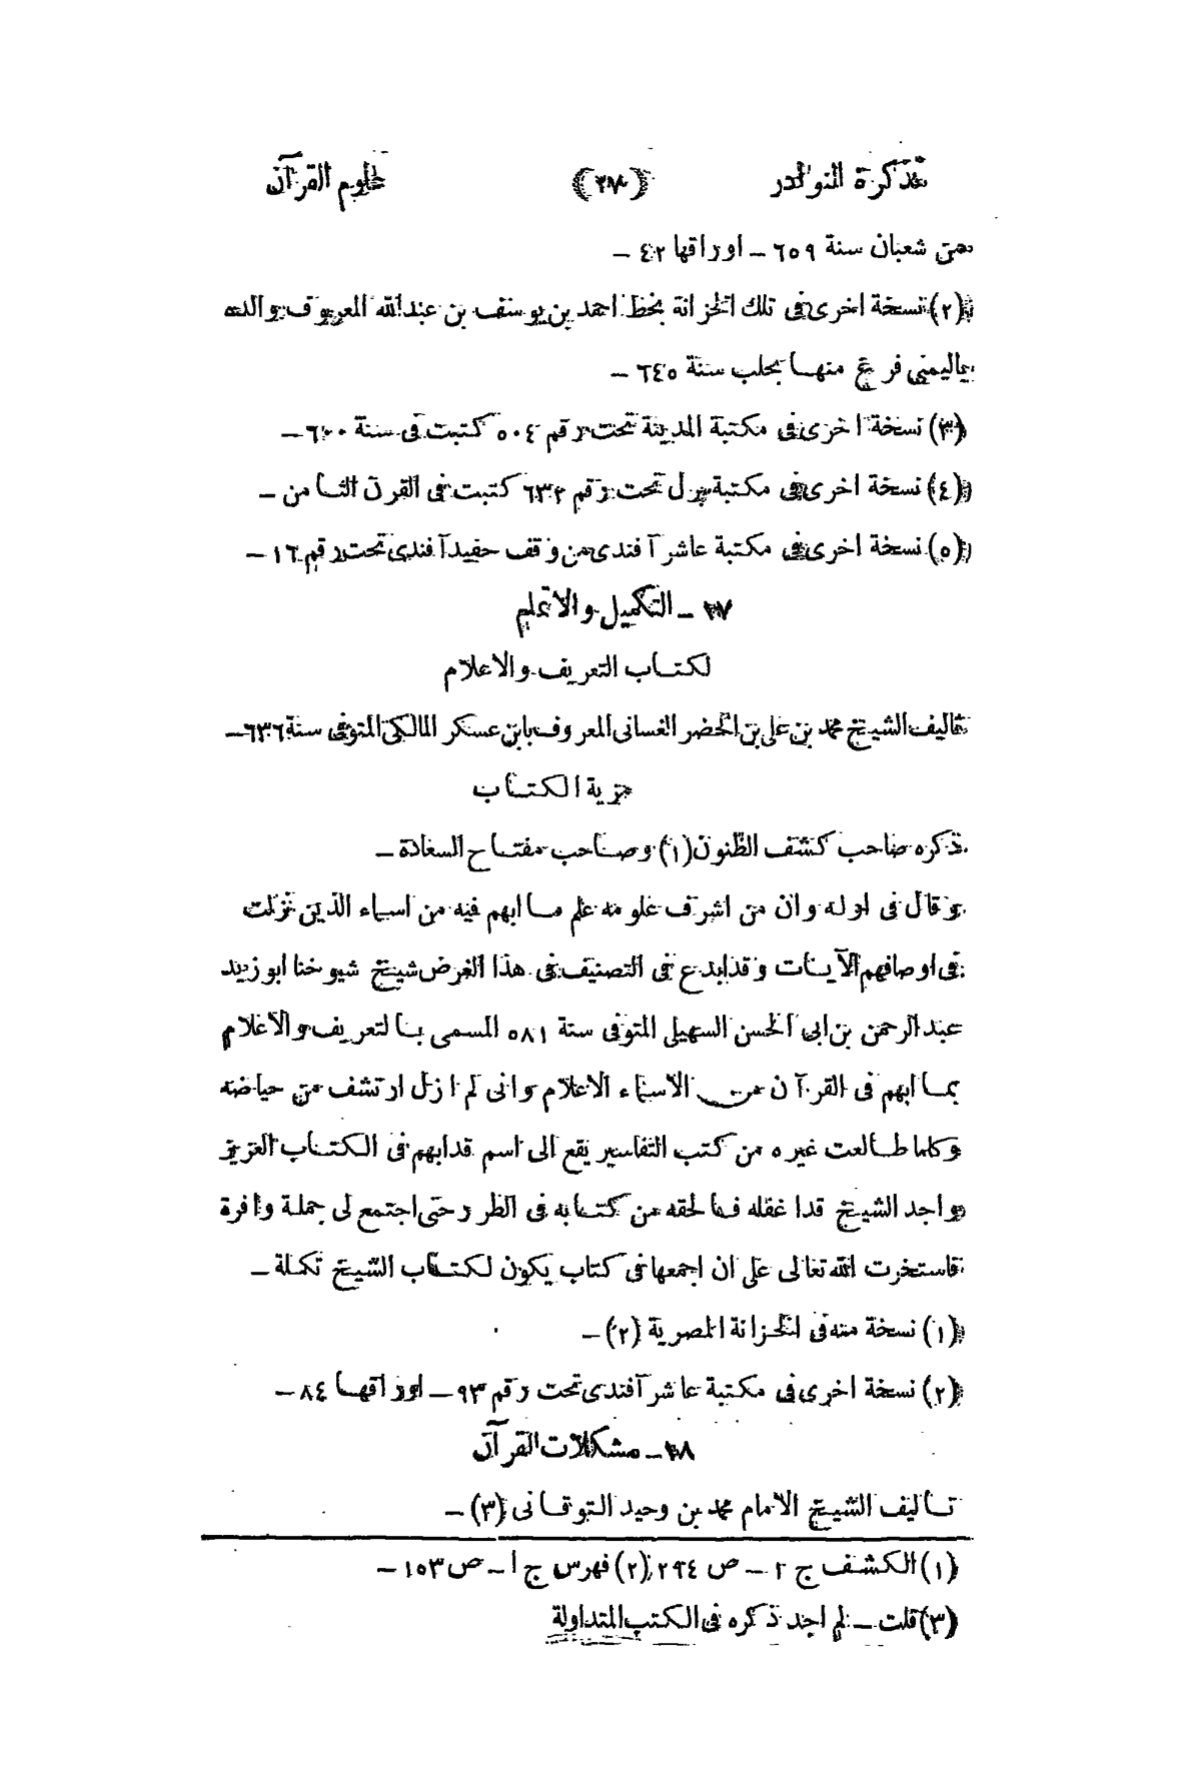 تذكرة النوادر (٢٨) علوم القرآن
من شعبان سنة ٦٥٩ – اوراقها ٤٢ –
(٢) نسخة اخرى فى تلك الخزانة بخط احمد بن يوسف بن عبدالله المعروف والده
باليمنى فرغ منها بحلب سنة ٦٤٥ –
(٣) نسخة اخرى فى مكتبة المدينة تحت رقم ٥٠٤ كتبت فى سنة ٦٠٠ –
(٤) نسخة اخرى فى مكتبة تحت رقم ٦٣٢ كتبت فى القرن الثامن –
(٥) نسخة اخرى فى مكتبة عاشر آفندى من وقف حفيد آفندى تحت رقم ١٦ –
٢٧ – التكميل والاتمام
لكتاب التعريف والاعلام
تاليف الشيخ محمد بن على بن الخضر الغسانى المعروف بابن عسكر المالكى المتوفى سنة ٦٣٦ –
مزية الكتاب
ذكره صاحب كشف الظنون (١) وصاحب مفتاح السعادة –
وقال فى اوله وان من اشرف علومه علم ما ابهم فيه من اسماء الذين نزلت
فى اوصافهم الآيات وقد ابدع فى التصنيف فى هذا الغرض شيخ شيوخنا ابو زيد
عبد الرحمن بن ابى الحسن السهيلى المتوفى سنة ٥٨١ المسمى بالتعريف والاعلام
بما ابهم فى القرآن من الاسماء الاعلام وانى لم ازل ارتشف من حياضه
وكلما طالعت غيره من كتب التفاسير يقع الى اسم قد ابهم فى الكتاب العزيز
واجد الشيخ قد اغفله فالحقه من كتابه فى الطرر حتى اجتمع لى جملة وافرة
فاستخرت الله تعالى على ان اجمعها فى كتاب يكون لكتاب الشيخ تكملة –
(١) نسخة منه فى الخزانة المصرية (٢) –
(٢) نسخة اخرى فى مكتبة عاشر آفندى تحت رقم ٩٣ – اوراقها ٨٤ –
٢٨ – مشكلات القرآن
تاليف الشيخ الامام محمد بن وحيد التوقانى (٣) –
(١) الكشف ج ٢ – ص ٢٩٤ (٢) فهرس ج ١ – ص ١٥٣ –
(٣) قلت – لم اجد ذكره فى الكتب المتداولة